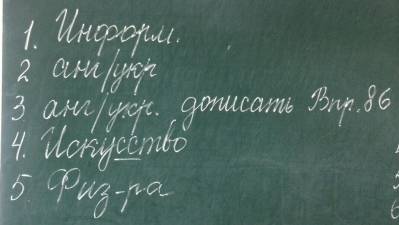 1. Информ.
2 анг/укр
3 анг/укр. дописать Впр. 86
4. Искусство
5 Физ-ра